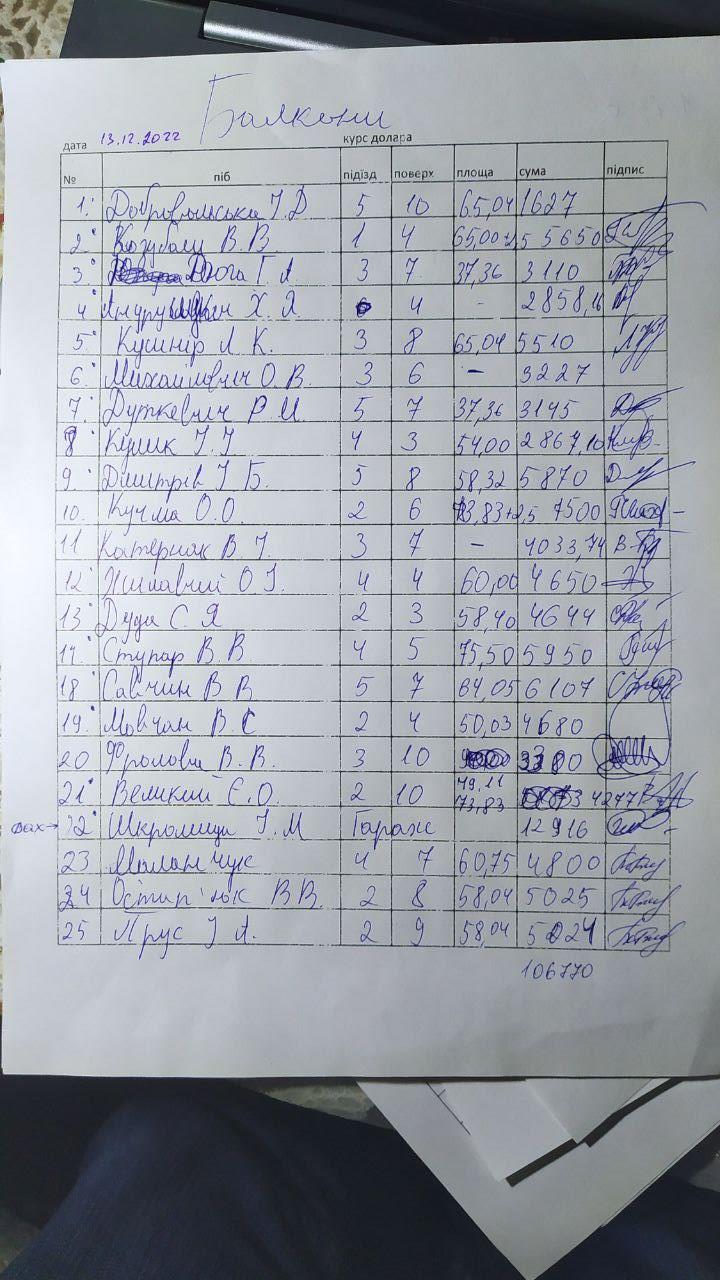 Балкони
дата 13.12.2022 курс долара
№ піб підїзд поверх площа сума підпис
1. Добровольська І.Д 5 10 65,04 1627
2. Козубаш В.В 1 4 65,00 5650
3. Дюга Г.А 3 7 37,36 3110
4 Х. Я 6 4 - 2858,16
5. Кушнір Л. К. 3 8 65,04 5510
6. Михайлович О. В. 3 6 - 3227
7. Дуткевич Р. И 5 7 37,36 3145
8 Кулик І. І 4 3 54,00 2867,10
9. Дмитрів І Б. 5 8 58,32 5870
10. Кучма О.О. 2 6 73,83+2,5 7500
11 Катерняк В. І. 3 7 - 4033,74
12 Жилавий О І. 4 4 60,00 4650
13 Дуда С. Я 2 3 58,40 4644
17. Ступар В. В 4 5 75,50 5950
18 Савчин В В 5 7 64,05 6107
19. Мовчан В. С 2 4 50,03 4680
20 Фролова В. В. 3 10 3380
21 Великий Є.О. 2 10 49,11 73,83 4277
Шкромида І. М Гараж 12916
23 Маланчук 4 7 60,75 4800
24 Остап'юк В В. 2 8 58,04 5025
25 Ярус І А. 2 9 58,04 5024
106770